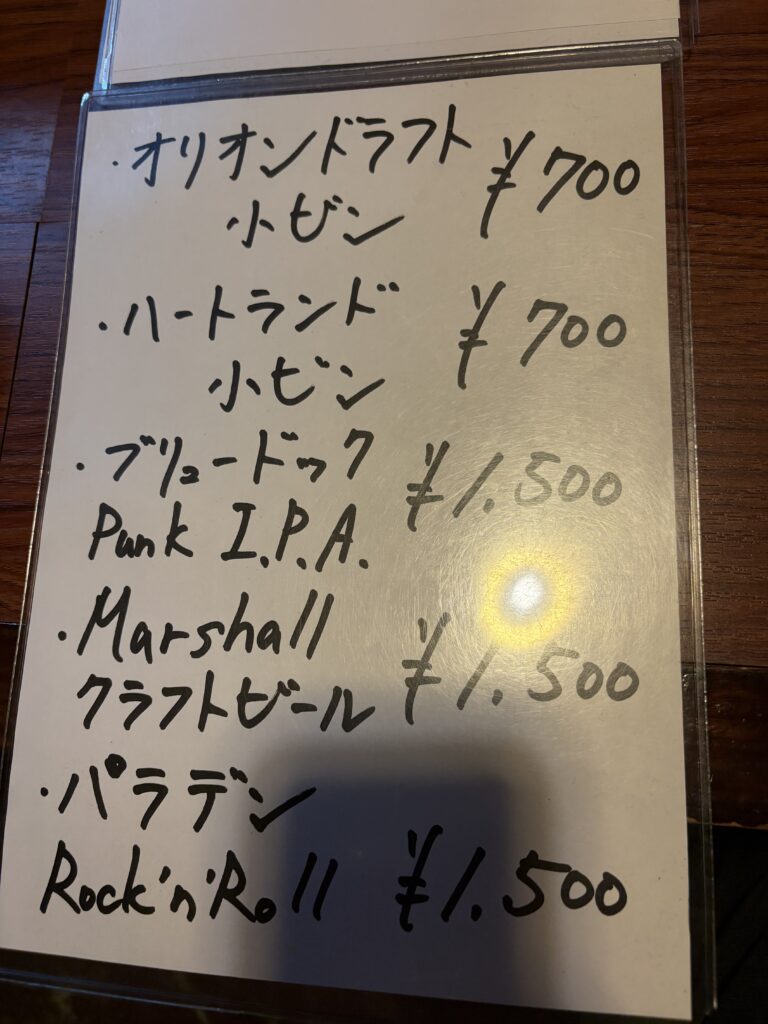 ・オリオンドラフト ¥700
小ビン
・ハートランド ¥700
小ビン
・ブリュードック ¥1.500
Punk I.P.A.
・Marshall
クラフトビール ¥1.500
・パラデン
Rock'n'Roll ¥1.500